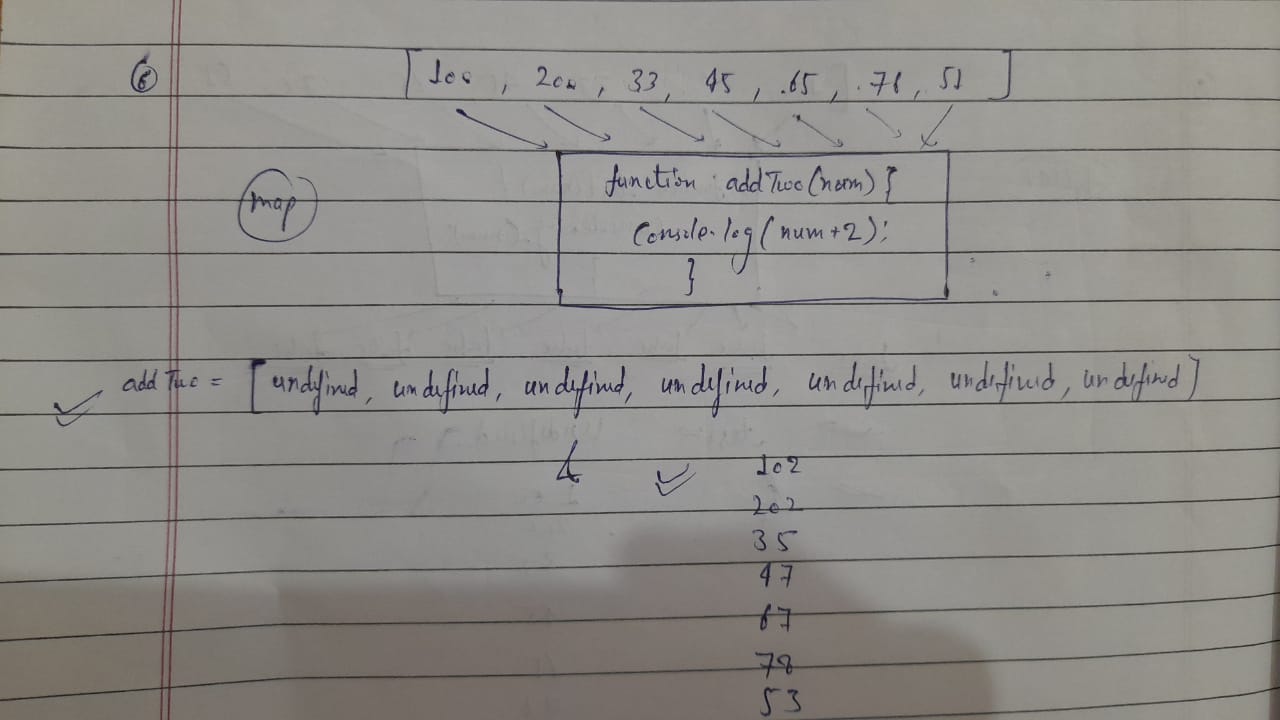 ⑥ [100, 200, 33, 45, 65, 76, 51]
map
function addTwo(num) {
console.log(num+2);
}
addTwo = [undefined, undefined, undefined, undefined, undefined, undefined, undefined]
&
102
202
35
47
67
78
53